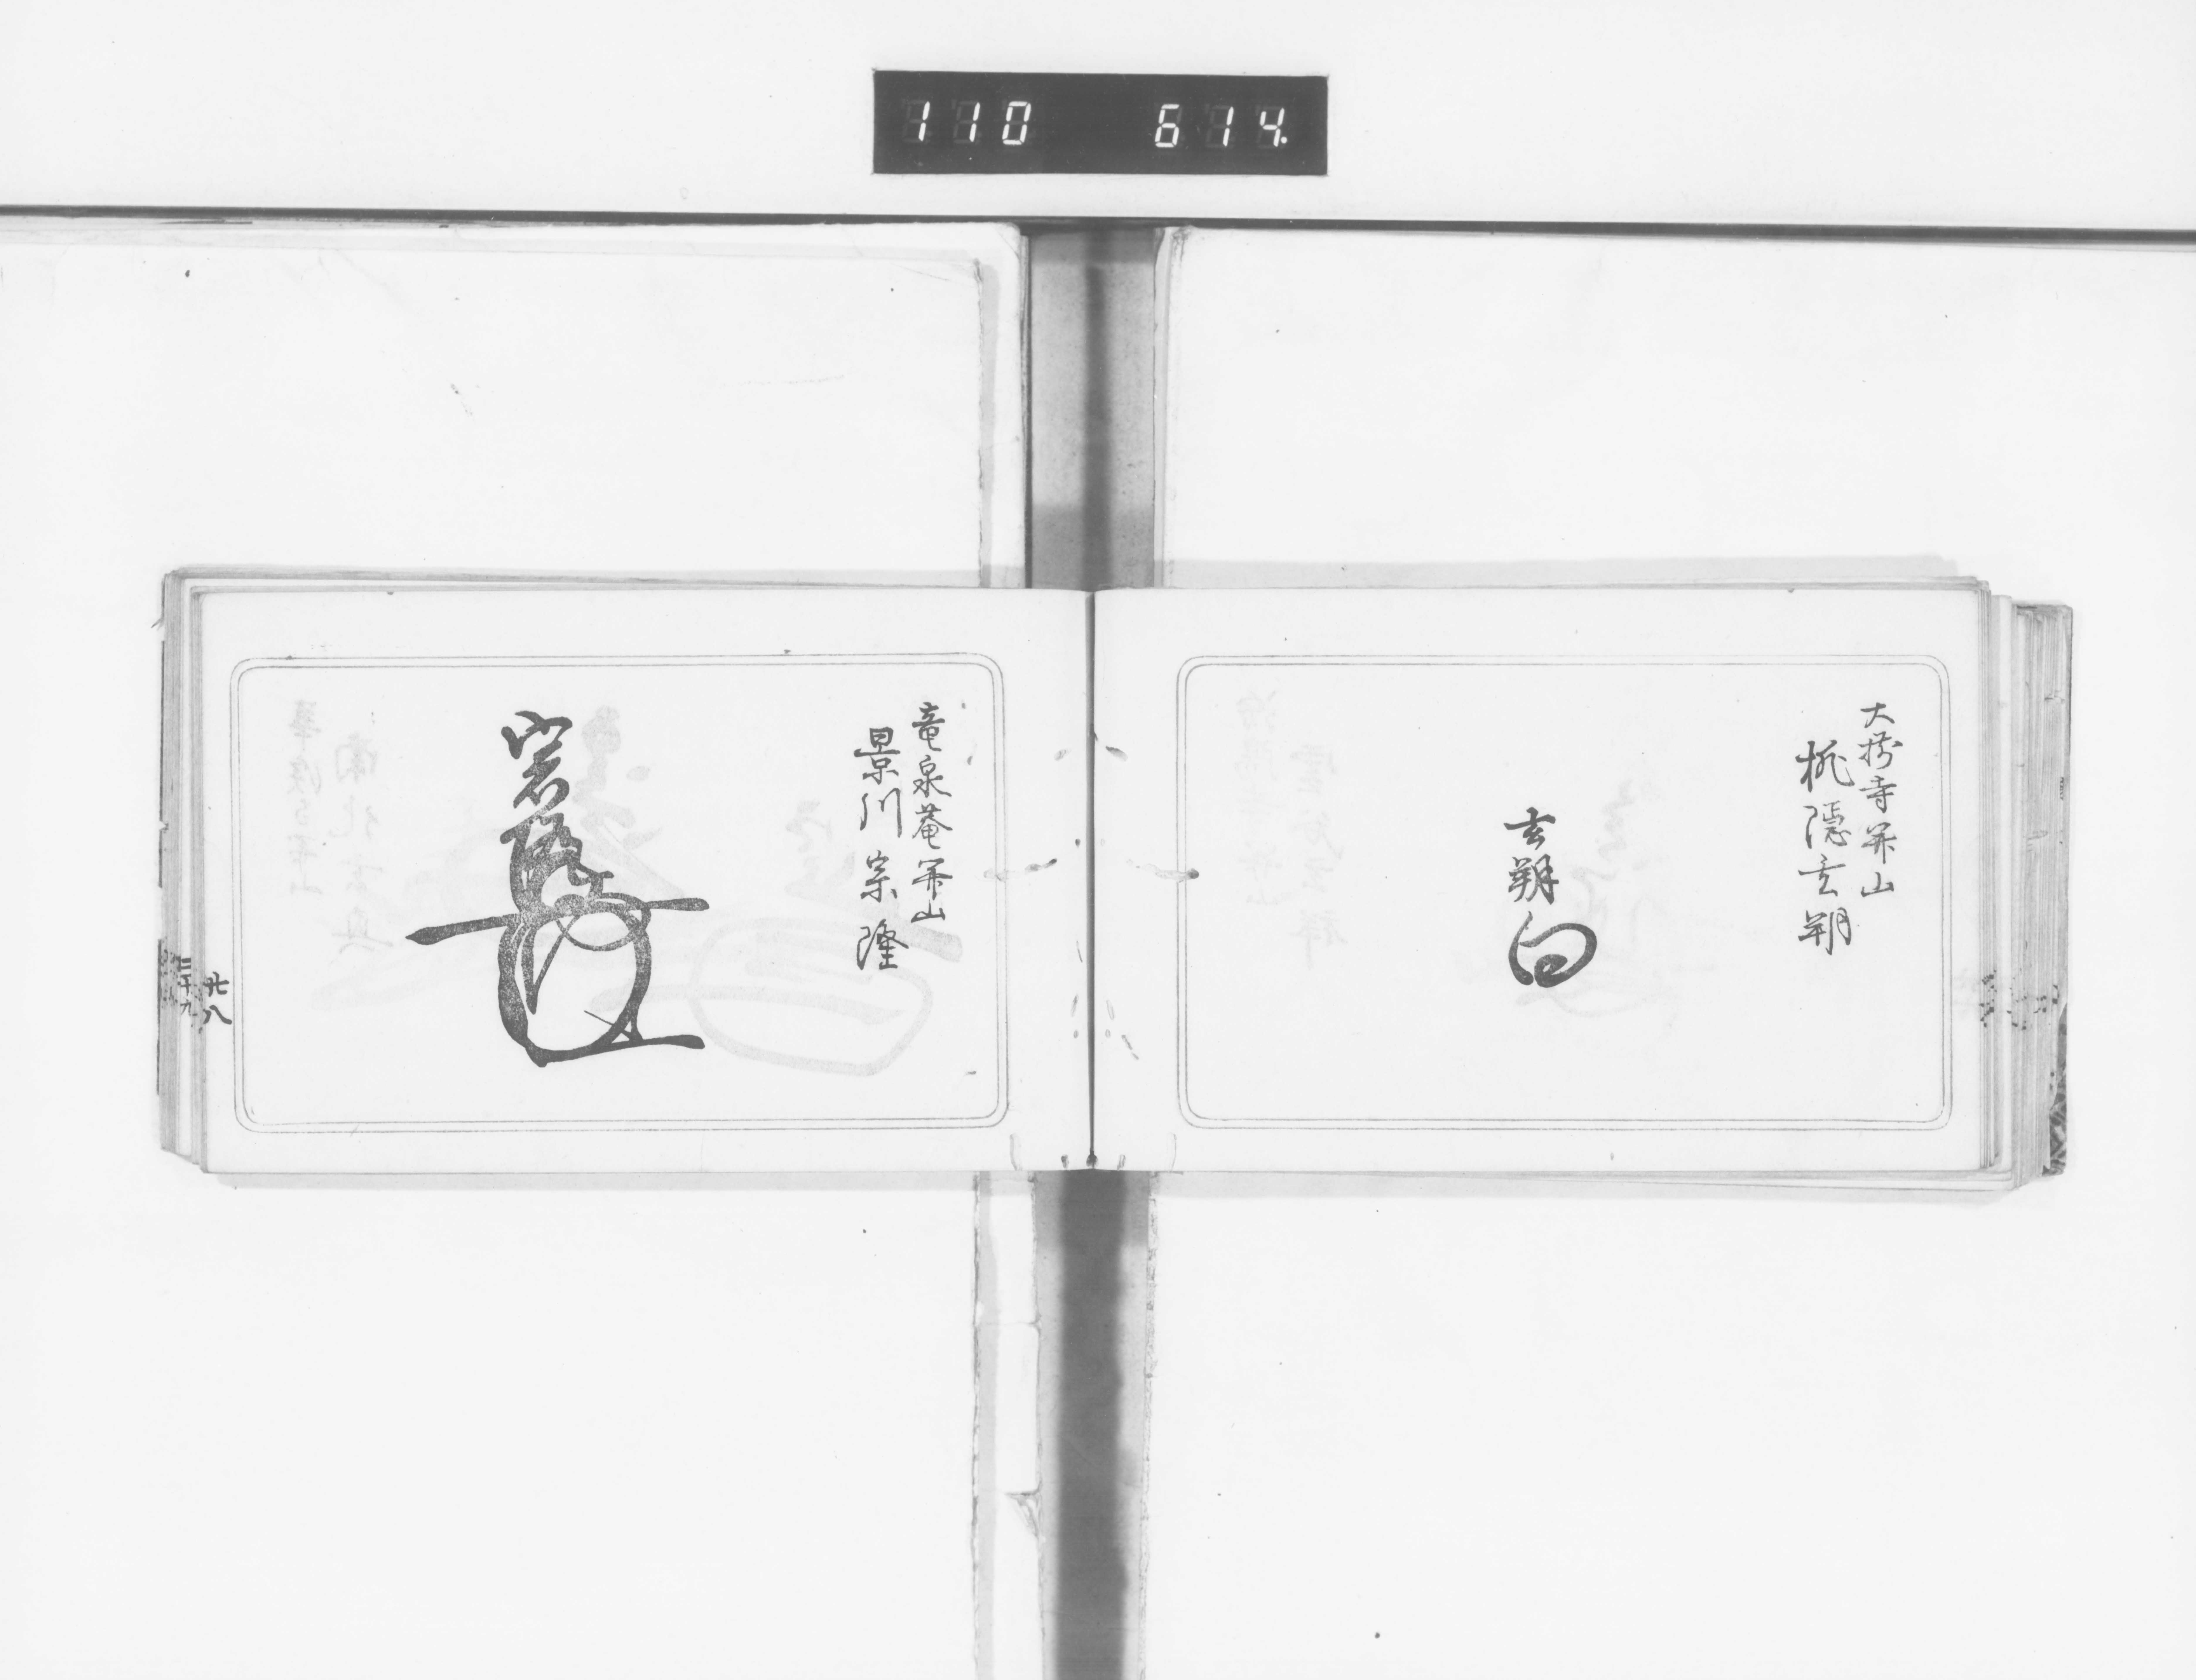 110 614
大樹寺開山
桃隠玄朔
玄朔
竜泉菴開山
景川宗隆
宗隆
廿八
二十九